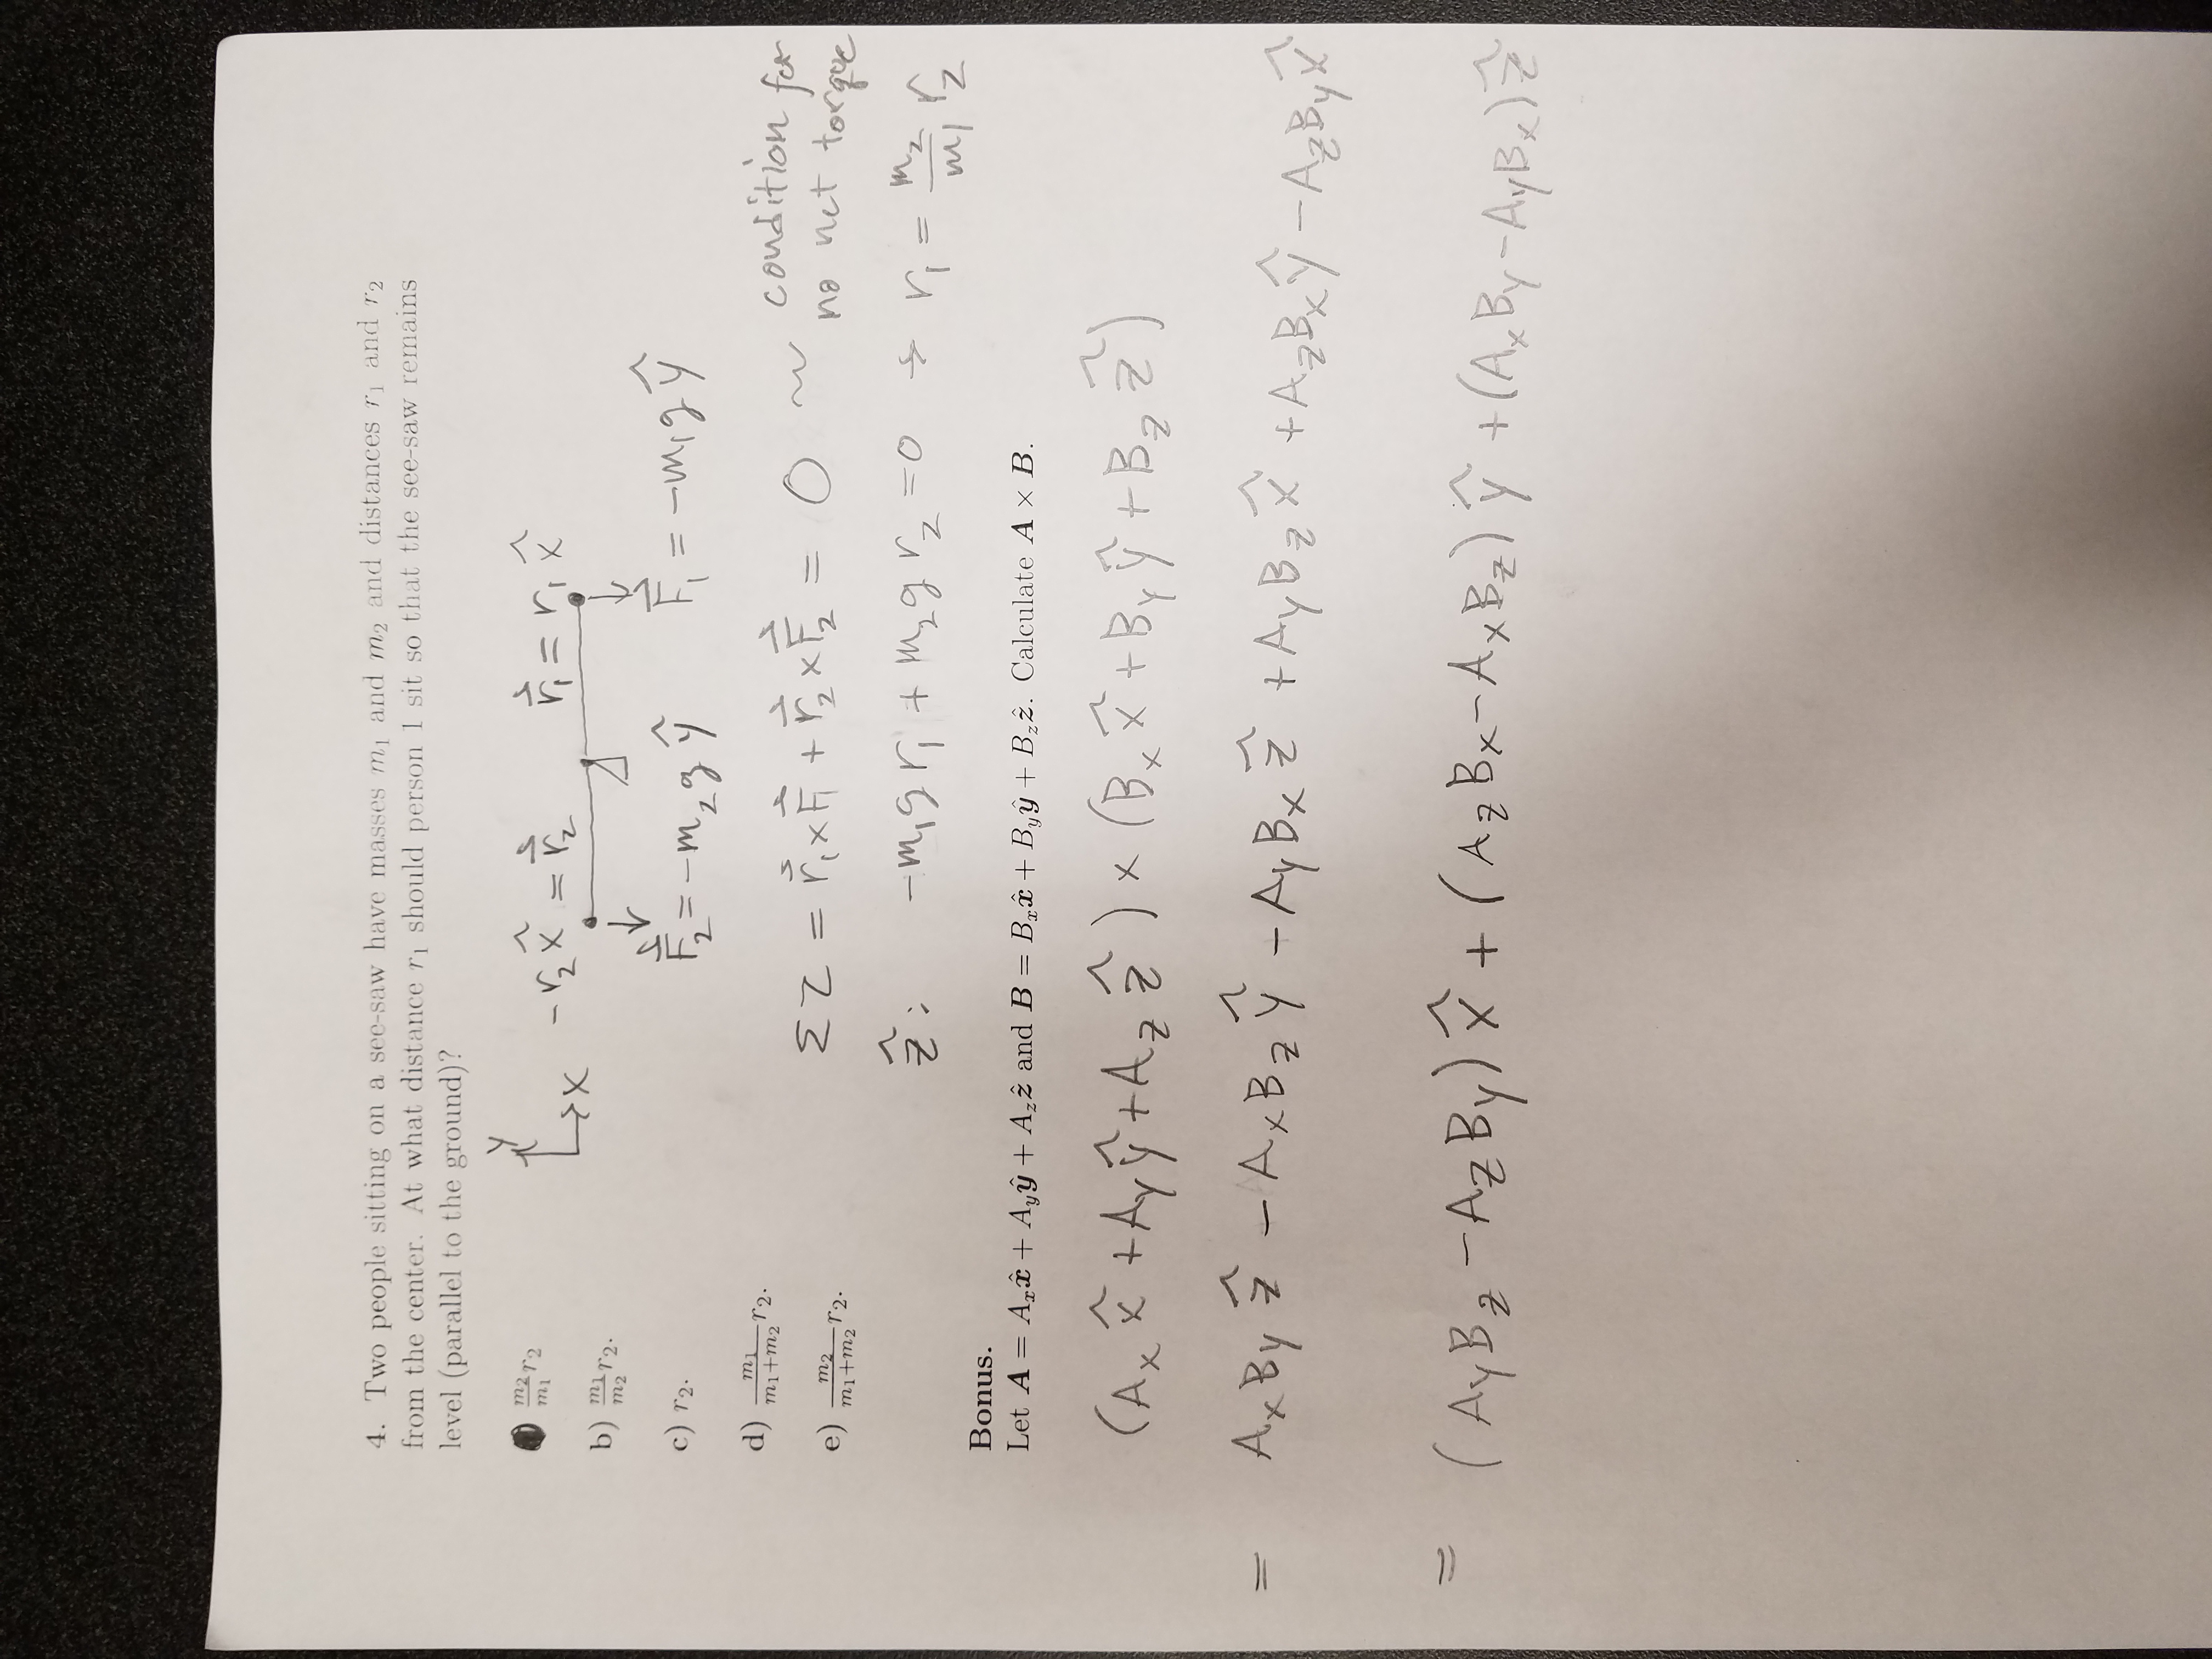 4. Two people sitting on a see-saw have masses m₁ and m₂ and distances r₁ and r₂
from the center. At what distance r₁ should person 1 sit so that the see-saw remains
level (parallel to the ground)?
m₂/m₁ r₂
b) m₁/m₂ r₂.
c) r₂.
d) m₁/(m₁+m₂) r₂.
e) m₂/(m₁+m₂) r₂.
y
x
-r₂ x̂ = r⃗₂
r⃗₁ = r₁ x̂
F⃗₂ = -m₂ g ŷ
F⃗₁ = -m₁ g ŷ
Στ = r⃗₁ × F⃗₁ + r⃗₂ × F⃗₂ = 0 ~ condition for
no net torque
ẑ: -m₁ g r₁ + m₂ g r₂ = 0 → r₁ = m₂/m₁ r₂
Bonus.
Let A = Aₓx̂ + A_yŷ + A_zẑ and B = Bₓx̂ + B_yŷ + B_zẑ. Calculate A × B.
(Aₓ x̂ + A_y ŷ + A_z ẑ) × (Bₓ x̂ + B_y ŷ + B_z ẑ)
= AₓB_y ẑ - AₓB_z ŷ - A_yBₓ ẑ + A_yB_z x̂ + A_zBₓ ŷ - A_zB_y x̂
= (A_yB_z - A_zB_y) x̂ + (A_zBₓ - AₓB_z) ŷ + (AₓB_y - A_yBₓ) ẑ